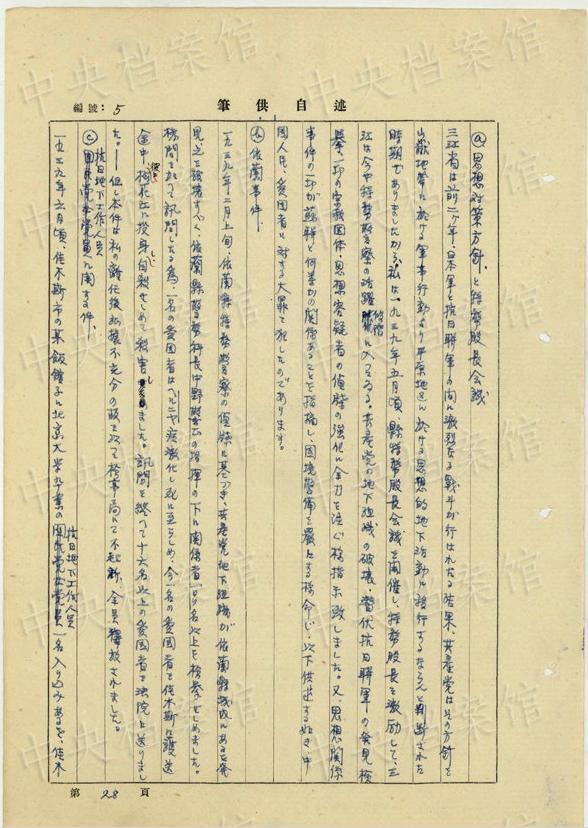 編號：5
筆供自述
(a) 思想対策方針、と特務股長会議
三江省は前二ヶ年、日本軍と抗日聯軍の間に激烈なる戦斗が行はれたる結果、共産党はその方針を
山岳地帯に於ける軍事行動より平原地区に於ける思想的地下活動に移行するならんと判断された
時期でありましたから、私は、一九三九年五月頃、縣特務股長会議を開催し、特務股長を激励して、三
江は今や特務警察の活躍時代に入るなる。共産党の地下組織の破壊、潜伏抗日聯軍の発見検
挙、一切の宗教団体、思想容疑者の偵諜の強化に全力を注ぐ様指示致しました。又、思想関係
事件の一切が蘇聯と何等かの関係あることを指摘し、国境警備を厳にする様命じ、以下供述する如き中
国人民、愛国者に対する大罪を犯したのであります。
(b) 依蘭事件
一九三九年二月上旬、依蘭縣特務警察の偵諜に基づき共産党地下組織が依蘭縣城内にあるを発
見之を破壊すべく、依蘭縣警務科長中野の指揮の下に関係者一〇〇名以上を検挙せしめました。
拷問を以て訊問したる為、一名の愛国者はヘルニヤ症激化し死に至らしめ、今一名の愛国者を佳木斯に護送
途中、松花江に投身自殺せしめて殺害しました。訊問を終へて十六名以上の愛国者を法院に送りまし
た。――但し本件は私の転任後証拠不充分の故を以て検事局にて不起訴、全員釋放されました。
(c) 抗日地下工作人員に関する件、
国民党
一九三九年六月頃、佳木斯市の某飯館子に北京大学卒業の抗日地下工作人員一名入り込みあるを、佳木
第 28 頁
中央档案馆